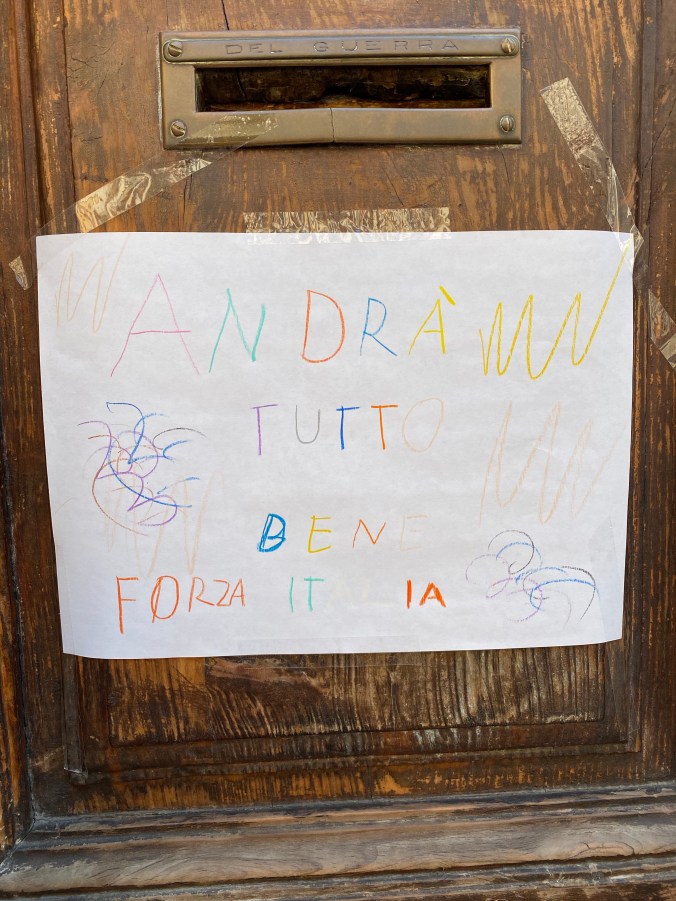 DEL GUERRA
ANDRÀ
TUTTO
BENE
FORZA IT IA